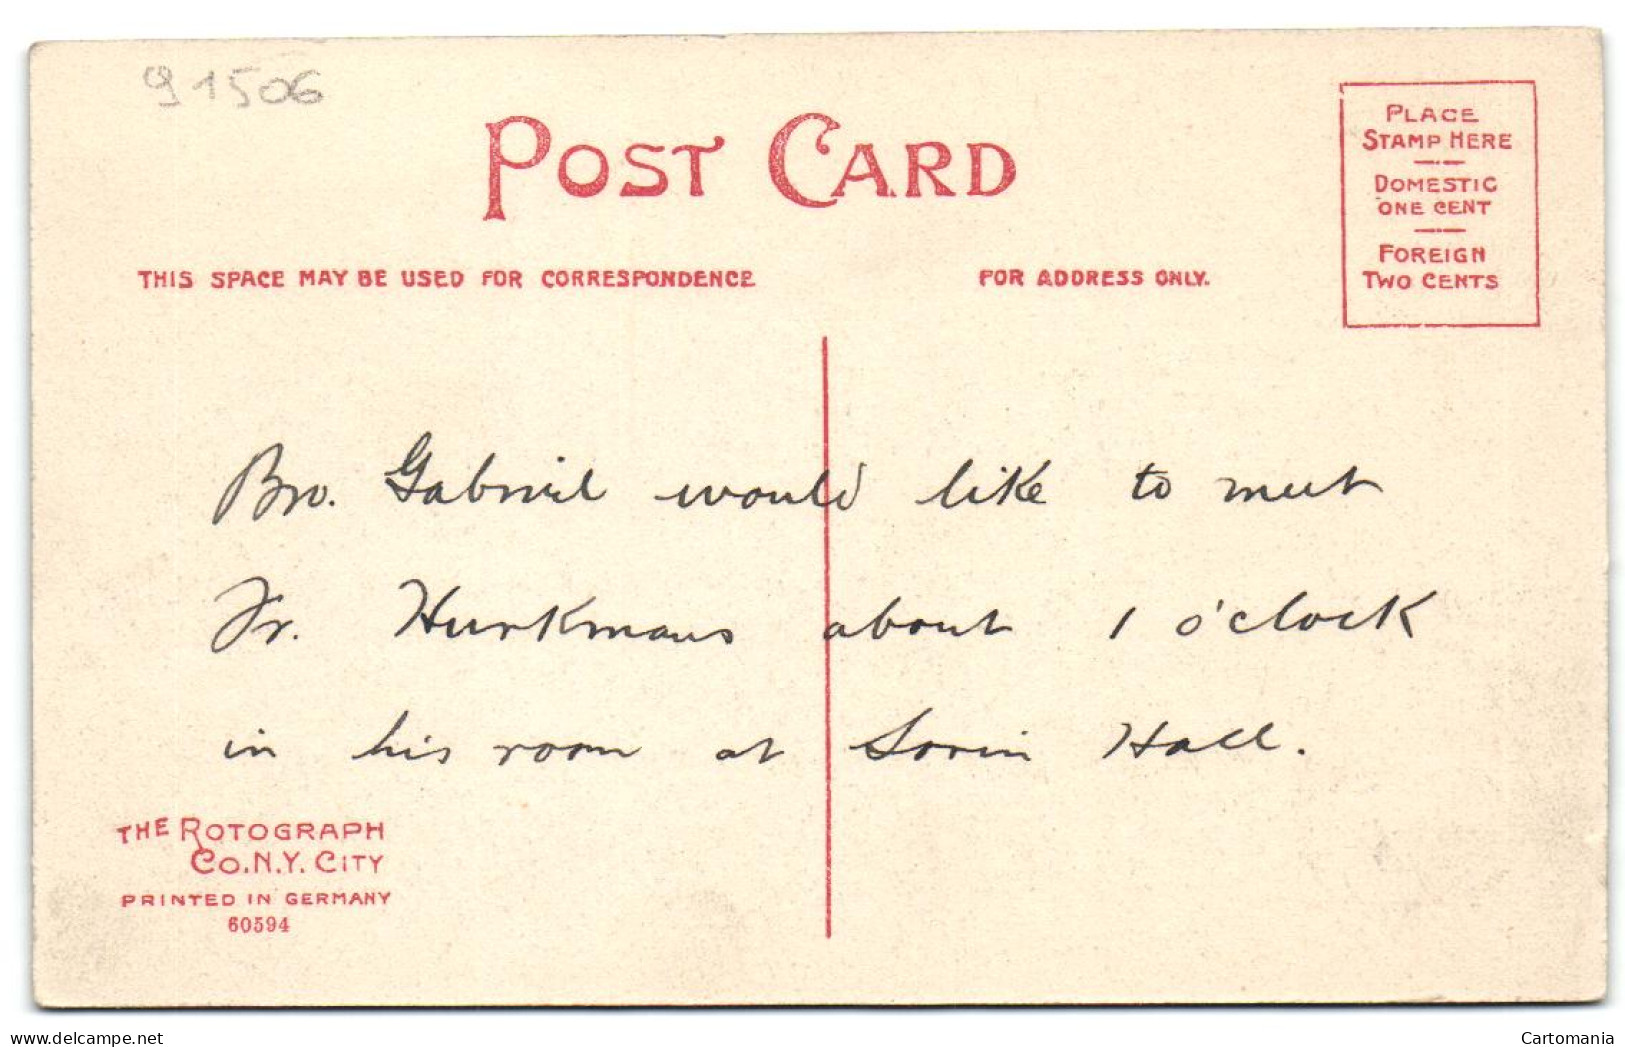 91506
POST CARD
PLACE
STAMP HERE
DOMESTIC
ONE CENT
FOREIGN
TWO CENTS
THIS SPACE MAY BE USED FOR CORRESPONDENCE
FOR ADDRESS ONLY.
Bro. Gabriel would like to meet
Fr. Hurkmans about 1 o'clock
in his room at Sorin Hall.
THE ROTOGRAPH
CO. N.Y. CITY
PRINTED IN GERMANY
60594
www.delcampe.net
Cartomania